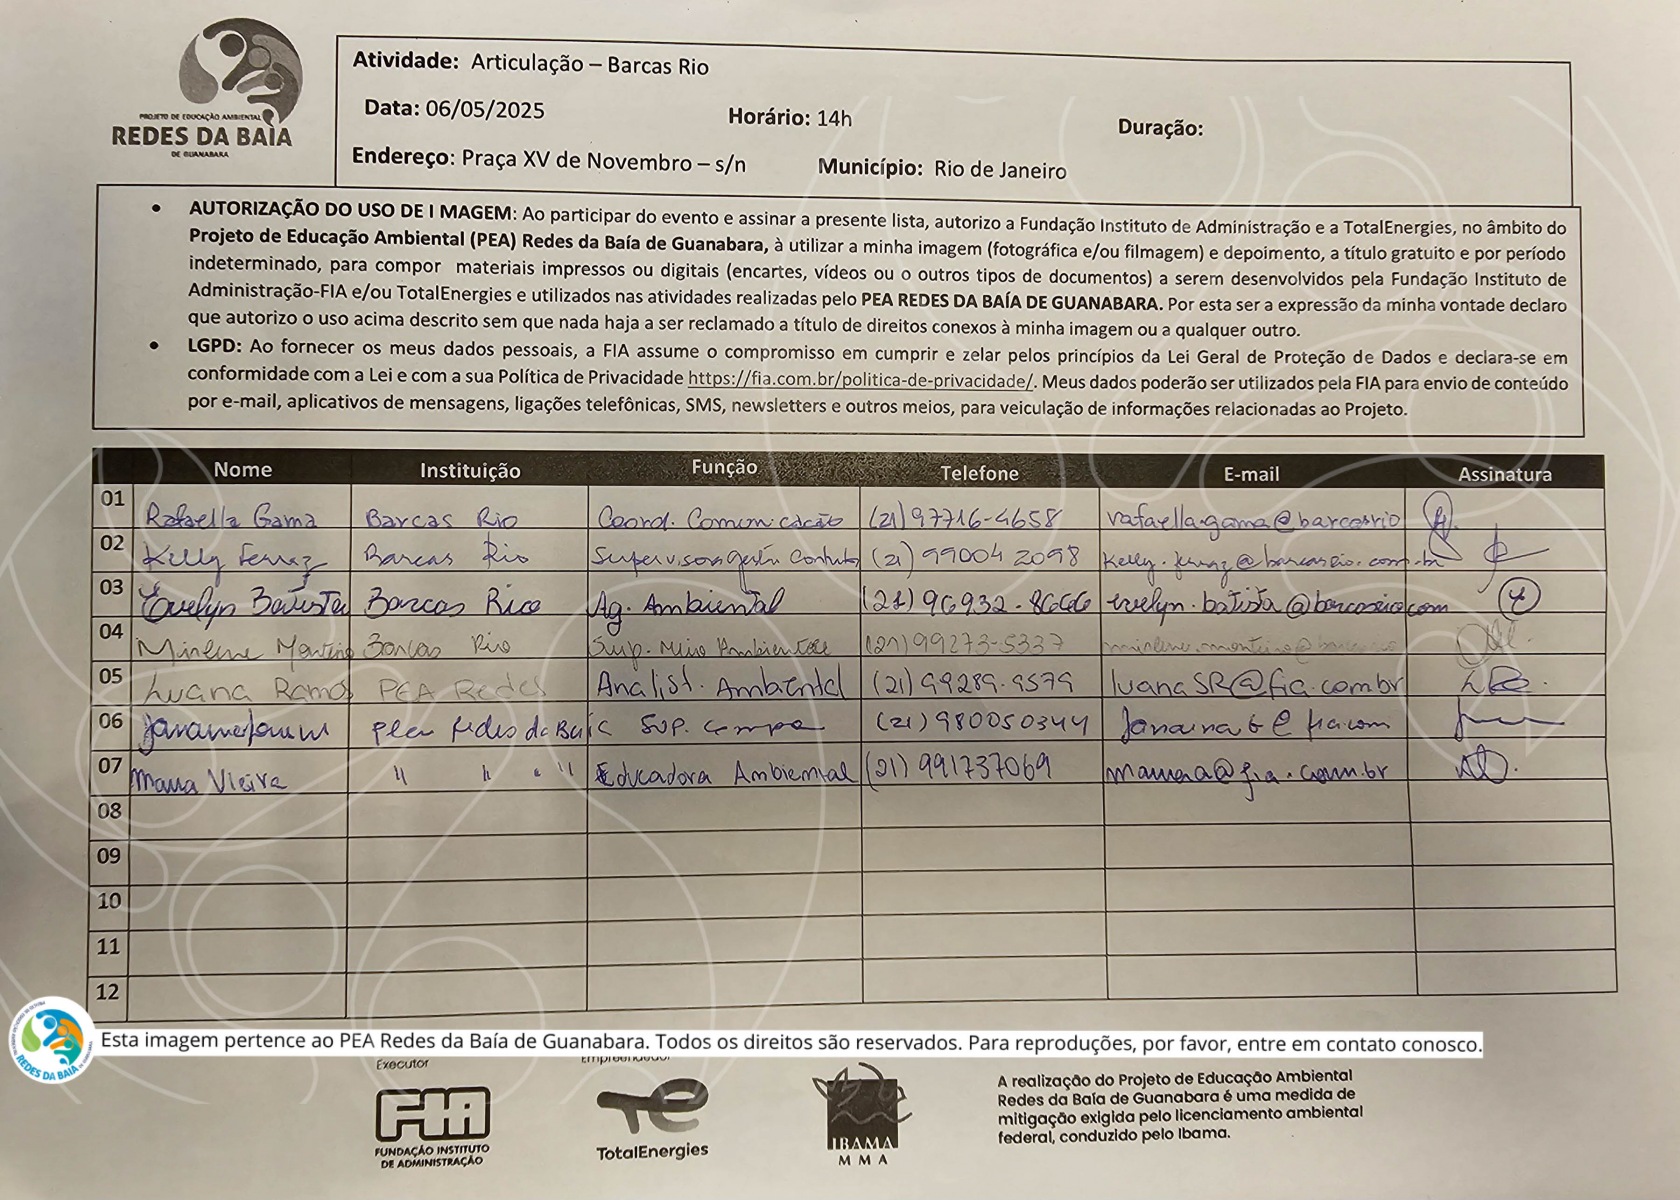 PROJETO DE EDUCAÇÃO AMBIENTAL
REDES DA BAÍA
DE GUANABARA
Atividade: Articulação – Barcas Rio
Data: 06/05/2025 Horário: 14h Duração:
Endereço: Praça XV de Novembro – s/n Município: Rio de Janeiro
• AUTORIZAÇÃO DO USO DE I MAGEM: Ao participar do evento e assinar a presente lista, autorizo a Fundação Instituto de Administração e a TotalEnergies, no âmbito do
Projeto de Educação Ambiental (PEA) Redes da Baía de Guanabara, à utilizar a minha imagem (fotográfica e/ou filmagem) e depoimento, a título gratuito e por período
indeterminado, para compor materiais impressos ou digitais (encartes, vídeos ou o outros tipos de documentos) a serem desenvolvidos pela Fundação Instituto de
Administração-FIA e/ou TotalEnergies e utilizados nas atividades realizadas pelo PEA REDES DA BAÍA DE GUANABARA. Por esta ser a expressão da minha vontade declaro
que autorizo o uso acima descrito sem que nada haja a ser reclamado a título de direitos conexos à minha imagem ou a qualquer outro.
• LGPD: Ao fornecer os meus dados pessoais, a FIA assume o compromisso em cumprir e zelar pelos princípios da Lei Geral de Proteção de Dados e declara-se em
conformidade com a Lei e com a sua Política de Privacidade https://fia.com.br/politica-de-privacidade/. Meus dados poderão ser utilizados pela FIA para envio de conteúdo
por e-mail, aplicativos de mensagens, ligações telefônicas, SMS, newsletters e outros meios, para veiculação de informações relacionadas ao Projeto.
Nome Instituição Função Telefone E-mail Assinatura
01 Rafaella Gama Barcas Rio Coord. Comunicação (21)97716-4658 rafaella.gama@barcasrio
02 Kelly Ferraz Barcas Rio Supervisora Gestão Contrato (21) 99004 2098 Kelly.ferraz@barcasrio.com.br
03 Evelyn Batista Barcas Rio Ag. Ambiental (21)96932-8666 evelyn.batista@barcasrio.com
04 Mirlene Barcas Rio Sup. Meio Ambiente (21)99273-5337
05 Luana Ramos PEA Redes Analist. Ambiental (21)99289-9579 luanaSR@fia.com.br
06 Pea Redes da Baía Sup. Campo (21)980050344
07 Vieira " " " " Educadora Ambiental (21) 991737069
08
09
10
11
12
REDES DA BAÍA
Esta imagem pertence ao PEA Redes da Baía de Guanabara. Todos os direitos são reservados. Para reproduções, por favor, entre em contato conosco.
Executor Empreendedor
FIA
FUNDAÇÃO INSTITUTO
DE ADMINISTRAÇÃO
TotalEnergies
IBAMA
M M A
A realização do Projeto de Educação Ambiental
Redes da Baía de Guanabara é uma medida de
mitigação exigida pelo licenciamento ambiental
federal, conduzido pelo Ibama.